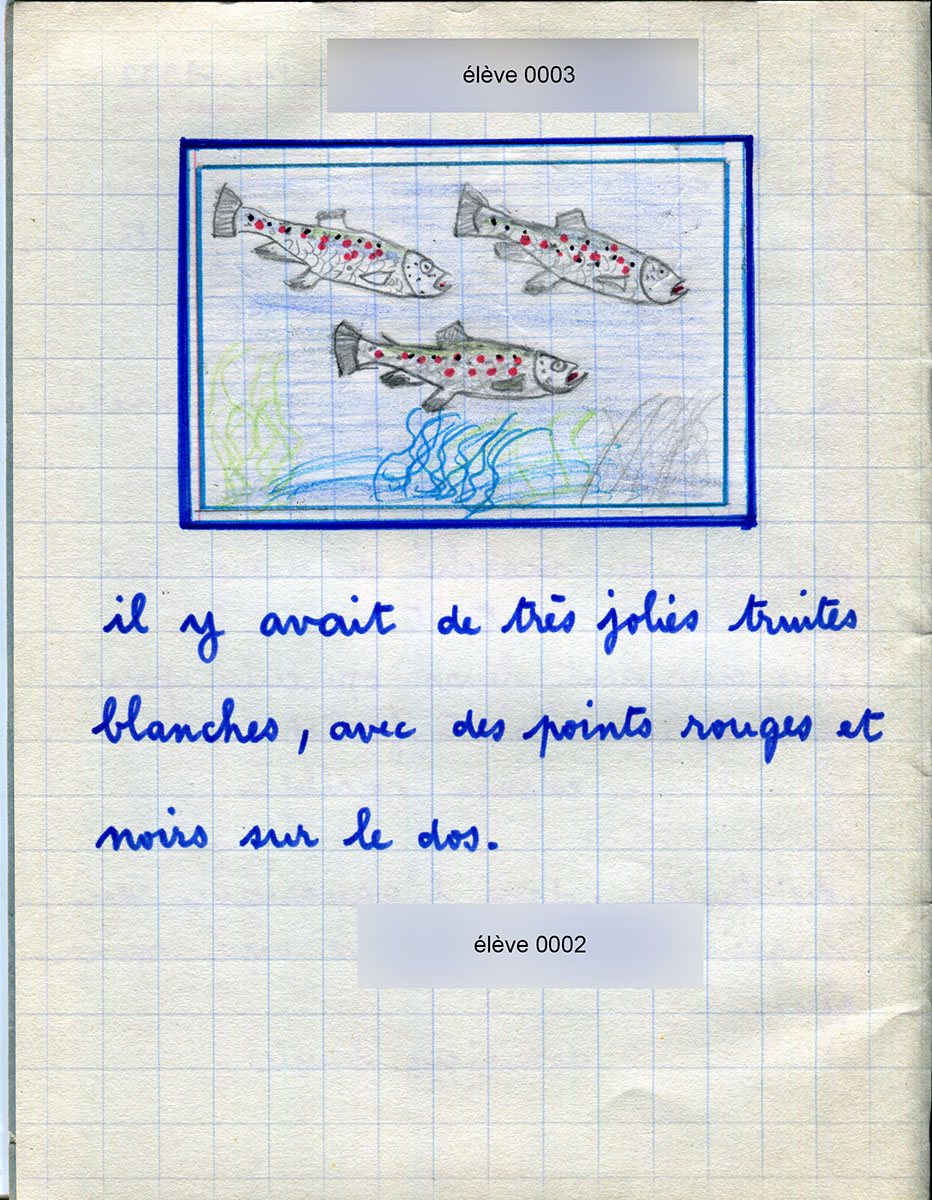 élève 0003
il y avait de très jolies truites
blanches, avec des points rouges et
noirs sur le dos.
élève 0002